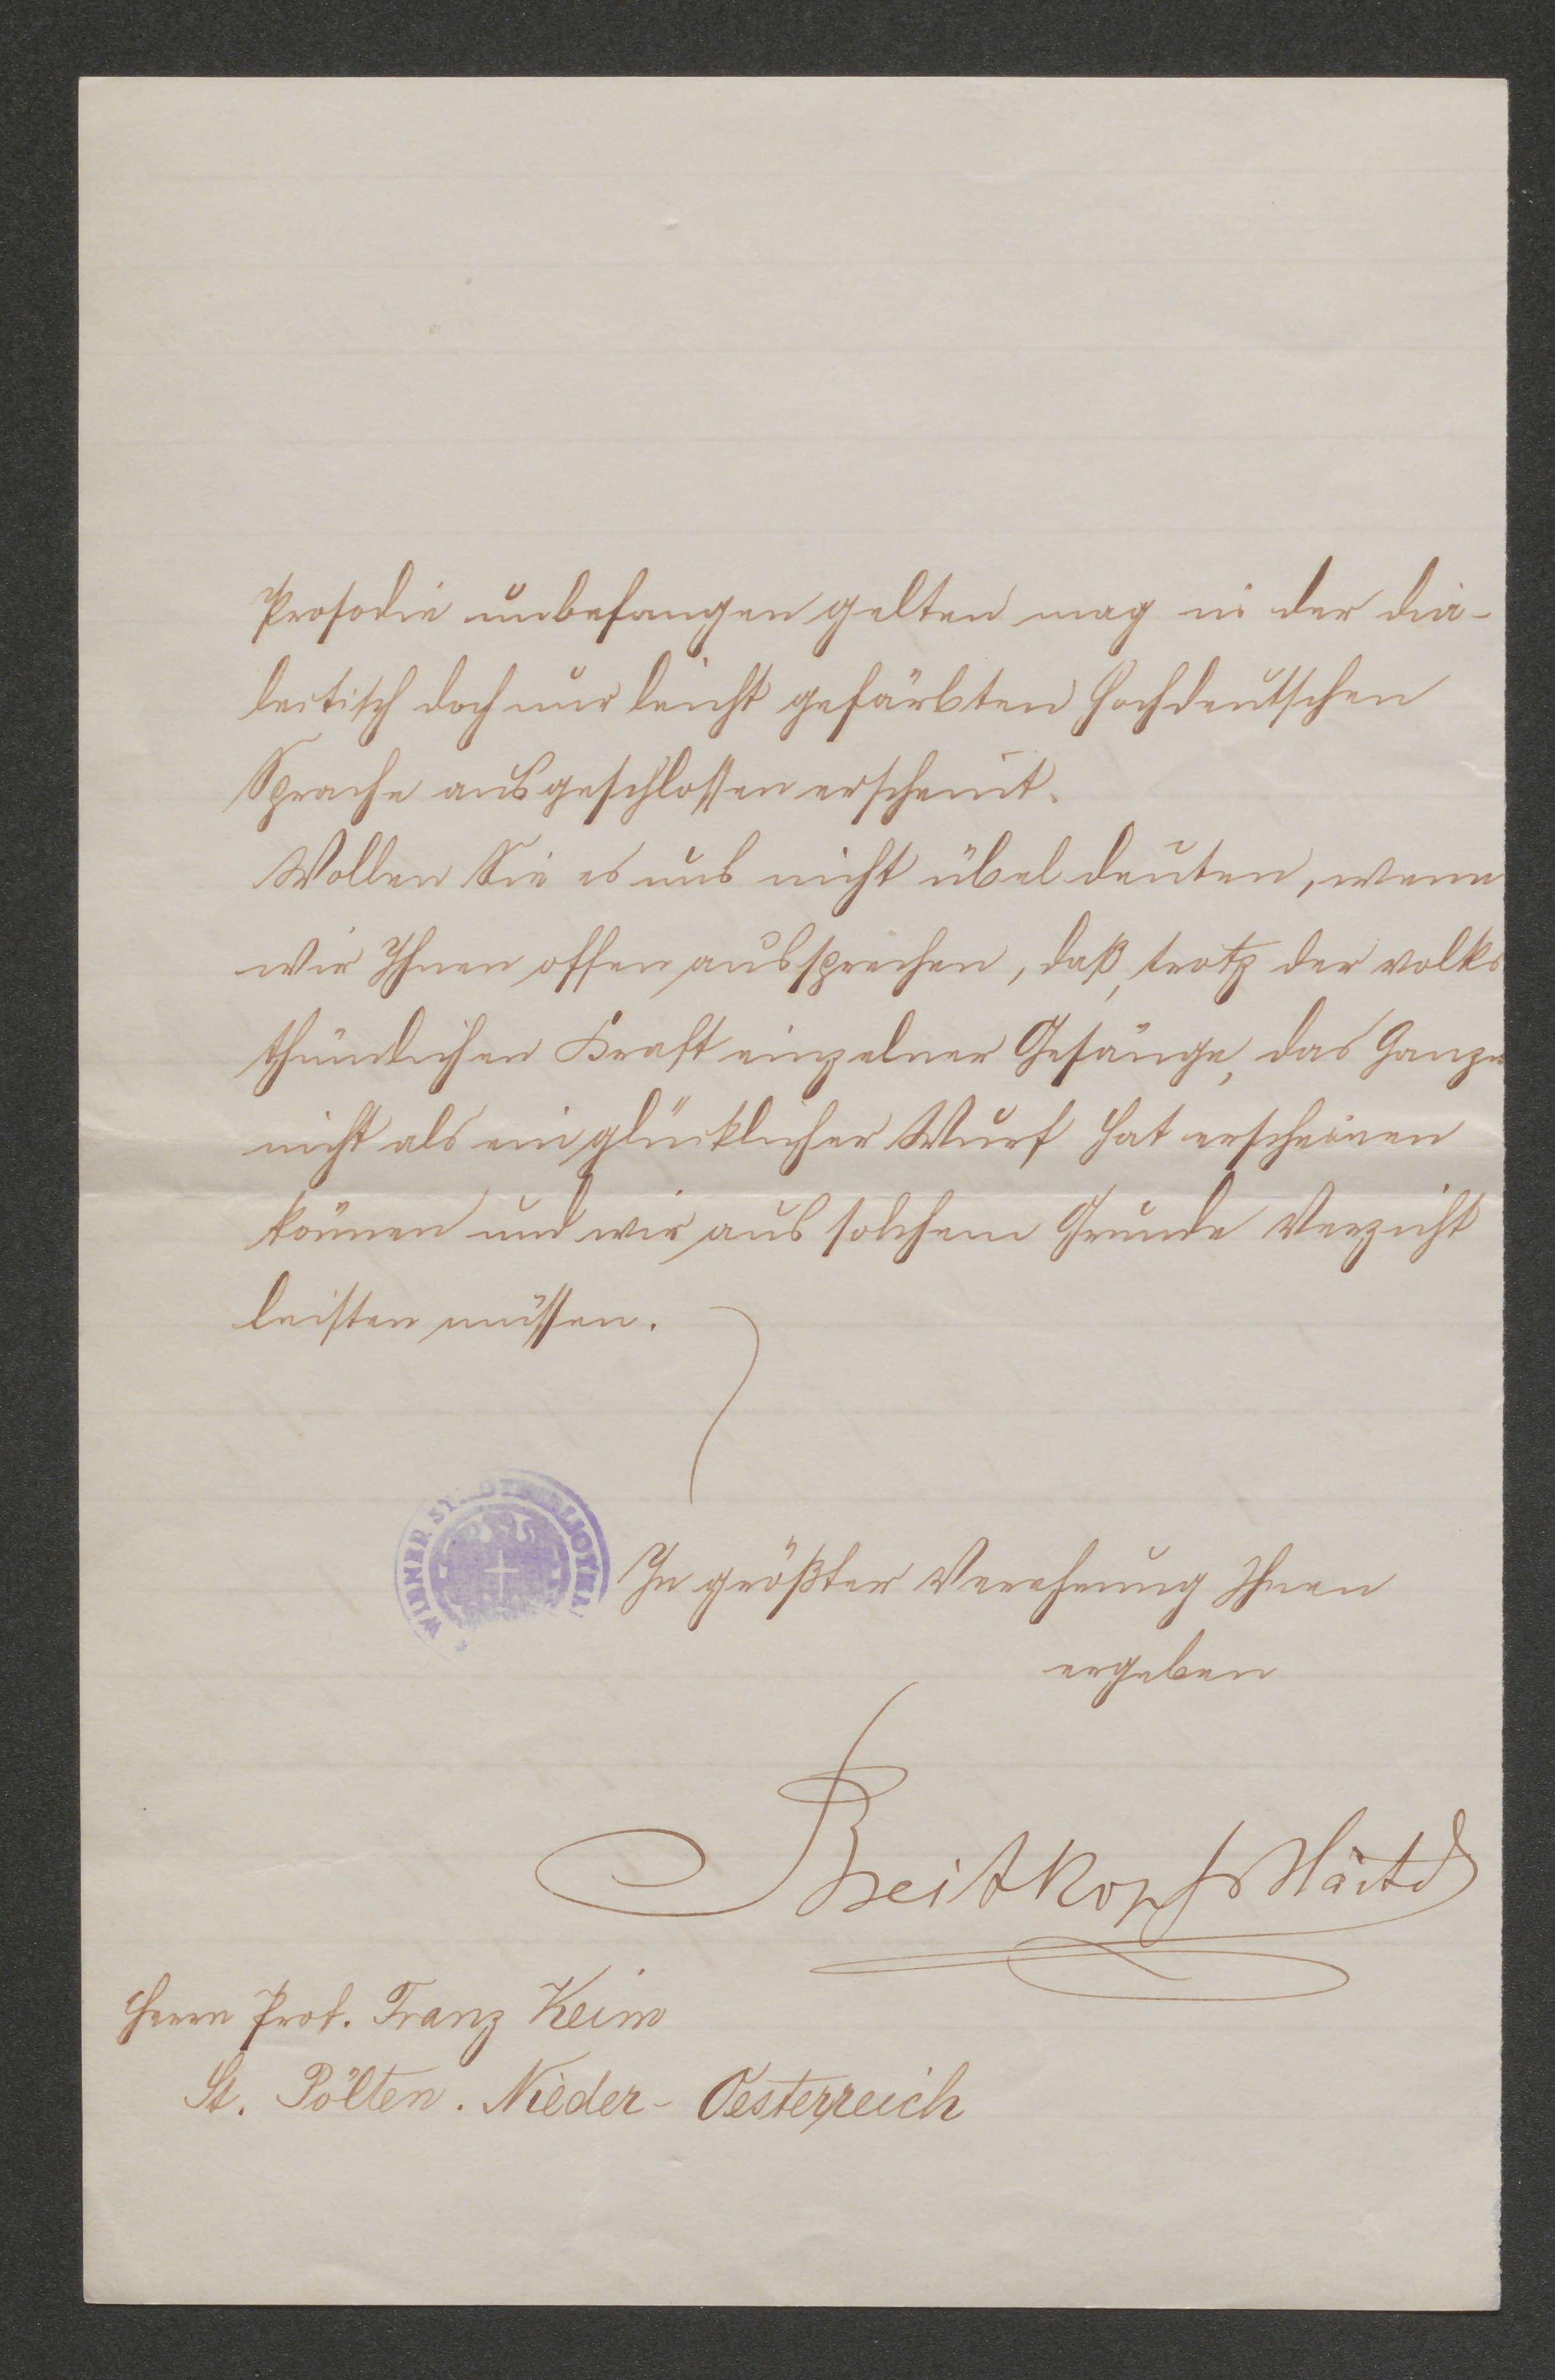 Prosodie unbefangen gelten mag in der dia-
lectisch doch nur leicht gefärbten hochdeutschen
Sprache ausgeschlossen erscheint.
Wollen Sie es uns nicht übel deuten, wenn
wir Ihnen offen aussprechen, daß, trotz der volks
thümlichen Kraft einzelner Gesänge, das Ganze
nicht als ein glücklicher Wurf hat erscheinen
können und wir aus solchem Grunde Verzicht
leisten müssen.
WIENER STADTBIBLIOTHEK
In größter Verehrung Ihnen
ergeben
Breitkopf & Härtel
Herrn Prof. Franz Keim
St. Pölten. Nieder-Oesterreich